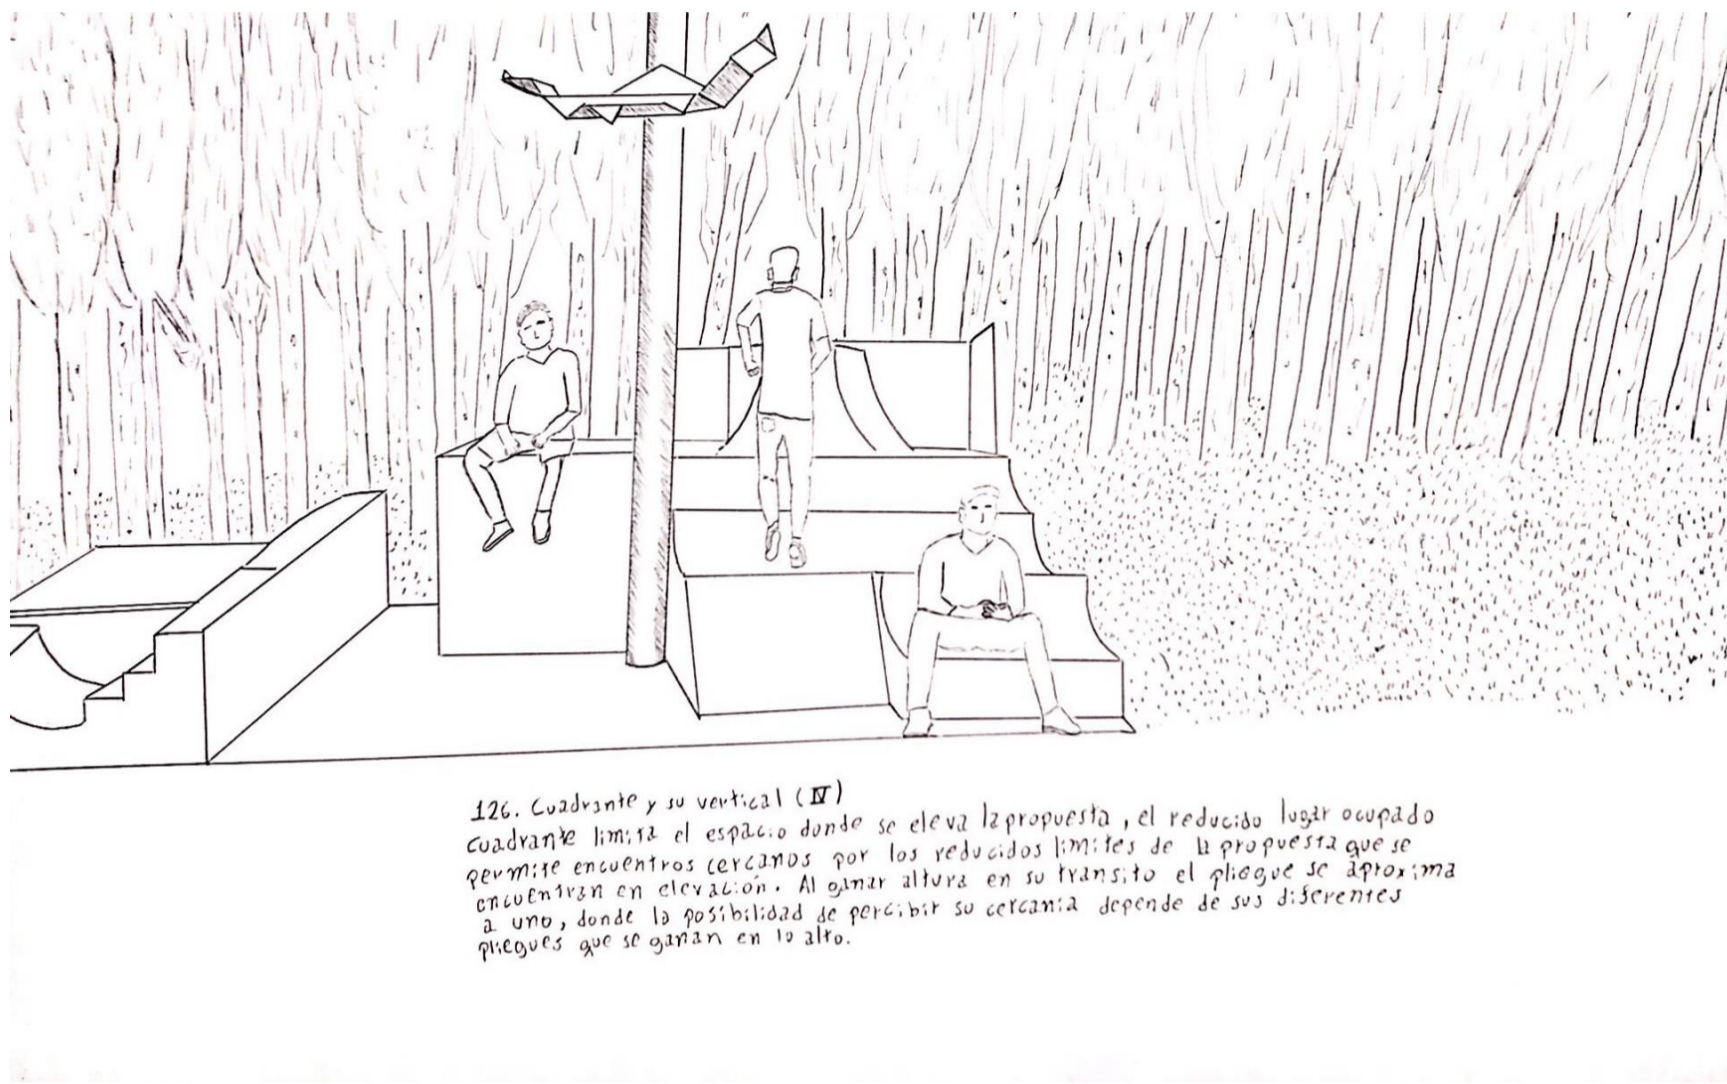 126. Cuadrante y su vertical (IV)
Cuadrante limita el espacio donde se eleva la propuesta, el reducido lugar ocupado
permite encuentros cercanos por los reducidos limites de la propuesta que se
encuentran en elevación. Al ganar altura en su transito el pliegue se aproxima
a uno, donde la posibilidad de percibir su cercania depende de sus diferentes
pliegues que se ganan en lo alto.